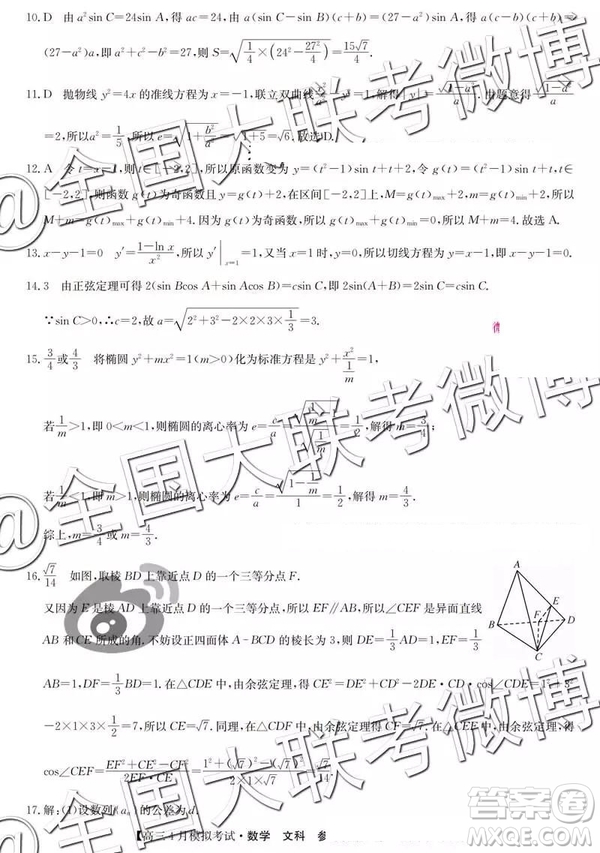 10. D 由 a²sin C=24sin A,得 ac=24. 由 a(sin C-sin B)(c+b)=(27-a²)sin A,得 a(c-b)(c+b)=
(27-a²)a,即 a²+c²-b²=27,则 S=√(1/4×(24²-27²/4))=15√7/4.
11. D 抛物线 y²=4x 的准线方程为 x=-1,联立双曲线 得|y|=√(1-a²)/a,由题意得 √(1-a²)/a
=2,所以 a²=1/5,所以 e=√(1+b²/a²)=√(1+5)=√6,故选D.
12. A 令 t=x-1,则 t∈[-2,2],所以原函数变为 y=(t²-1)sin t+t+2,令 g(t)=(t²-1)sin t+t,t∈
[-2,2],则函数 g(t)为奇函数且 y=g(t)+2,在区间[-2,2]上,M=g(t)max+2,m=g(t)min+2,所以
M+m=g(t)max+g(t)min+4. 因为 g(t)为奇函数,所以 g(t)max+g(t)min=0,所以 M+m=4. 故选 A.
13. x-y-1=0 y′=(1-ln x)/x²,所以 y′|x=1=1,又当 x=1 时,y=0,所以切线方程为 x-y-1=0.
14. 3 由正弦定理可得 2(sin Bcos A+sin Acos B)=csin C,即 2sin(A+B)=csin C.
∵sin C>0,∴c=2,故 a=√(2²+3²-2×2×3×1/3)=3.
15. 3/4或4/3 将椭圆 y²+mx²=1(m>0)化为标准方程是 y²+x²/(1/m)=1,
若1/m>1,即 0<m<1,则椭圆的离心率为 e=c/a= =1/2,解得 m=3/4;
若0<1/m<1,即 m>1,则椭圆的离心率为 e=c/a=√(1-1/m)/1=1/2,解得 m=4/3.
综上,m=3/4或 m=4/3.
16. √7/14 如图,取棱 BD 上靠近点 D 的一个三等分点 F.
又因为 E 是棱 AD 上靠近点 D 的三等分点,所以 EF∥AB,所以∠CEF 是异面直线
AB 和 CE 所成的角. 不妨设正四面体 A-BCD 的棱长为 3,则 DE=1/3AD=1,EF=1/3
AB=1,DF=1/3BD=1. 在△CDE 中,由余弦定理,得 CE²=DE²+CD²-2DE·CD·cos∠CDE=1²+3²
-2×1×3×1/2=7,所以 CE=√7. 同理,在△CDF 中,由余弦定理得 CF=√7. 在△CEF 中,由余弦定理,得
cos∠CEF=(EF²+CE²-CF²)/(2EF·CE)=(1²+(√7)²-(√7)²)/(2×1×√7)=√7/14.
A
E
B
F
D
C
17. 解:(1)设数列{an}的公差为 d,
【高三4月模拟考试·数学 文科 参
@全国大联考微博
@全国大联考微博
@全国大联考微博
答案圈